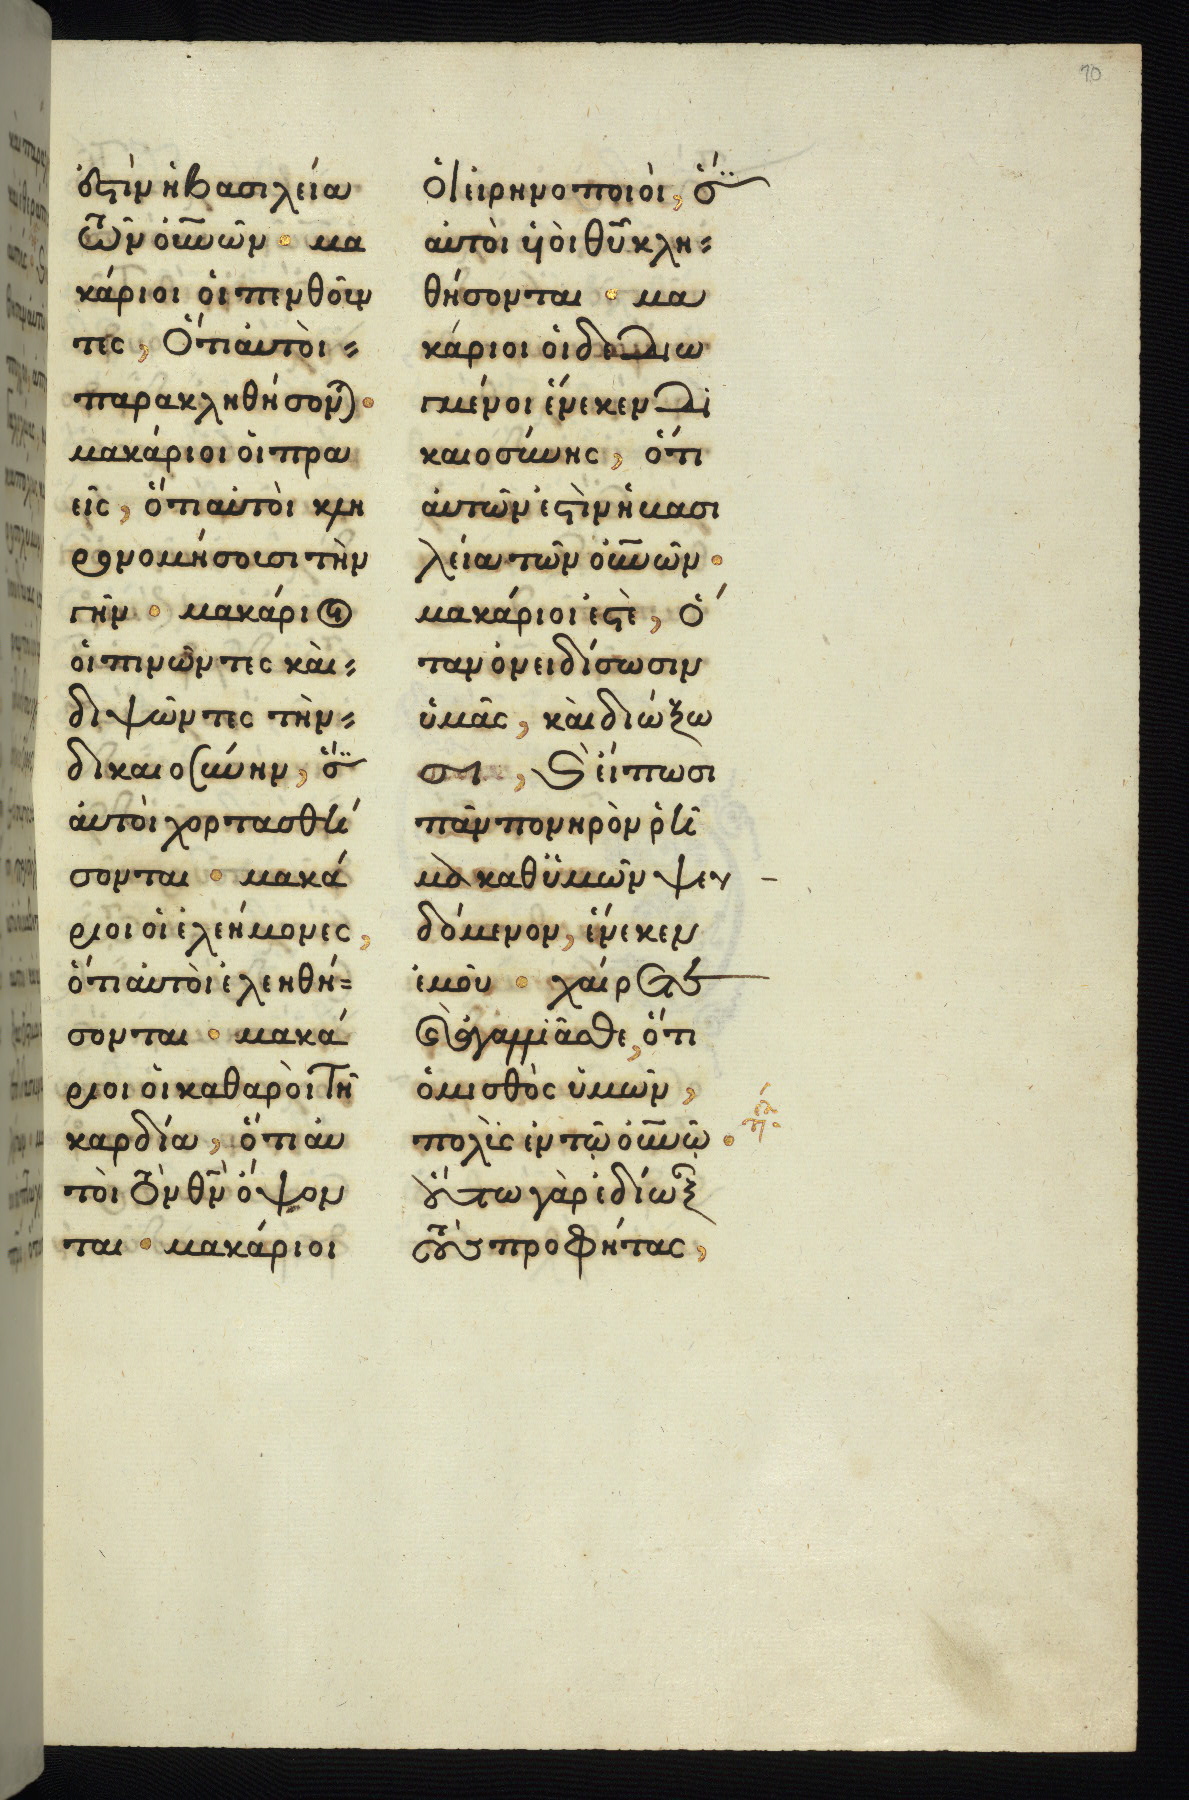 10
ἐστὶν ἡ βασιλεία
τῶν οὐνῶν · μα
κάριοι οἱ πενθοῦν
τες, ὅτι αὐτοὶ
παρακληθήσον) ·
μακάριοι οἱ πρα
εῖς, ὅτι αὐτοὶ κλη
ρονομήσουσι τὴν
γῆν · μακάριοι
οἱ πινῶντες καὶ
διψῶντες τὴν
δικαιοσύνην, ὅτι
αὐτοὶ χορτασθή
σονται · μακά
ριοι οἱ ἐλεήμονες,
ὅτι αὐτοὶ ἐλεηθή
σονται · μακά
ριοι οἱ καθαροὶ τῆ
καρδία, ὅτι αὐ
τοὶ τὸν θν ὄψον
ται · μακάριοι
οἱ εἰρηνοποιοὶ, ὅτι
αὐτοὶ υἱοὶ θυ κλη
θήσονται · μα
κάριοι οἱ δεδιω
γμένοι ἕνεκεν δι
καιοσύνης, ὅτι
αὐτῶν ἐστὶν ἡ βασι
λεία τῶν οὐνῶν ·
μακάριοι ἐστὲ, ὅ
ταν ὀνειδίσωσιν
ὑμᾶς, καὶ διώξω
σι, καὶ εἴπωσι
πᾶν πονηρὸν ῥῆ
μα καθ ὑμῶν ψευ
δόμενον, ἕνεκεν
ἐμοῦ · χαίρετε
καὶ ἀγαλλιᾶσθε, ὅτι
ὁ μισθὸς ὑμῶν,
πολὺς ἐν τῷ οὐνῷ ·
οὕτω γὰρ ἐδίωξ
τοὺς προφήτας,